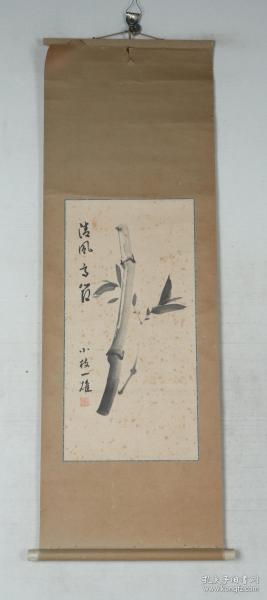 清風高節
小枝一雄
孔夫子旧书网